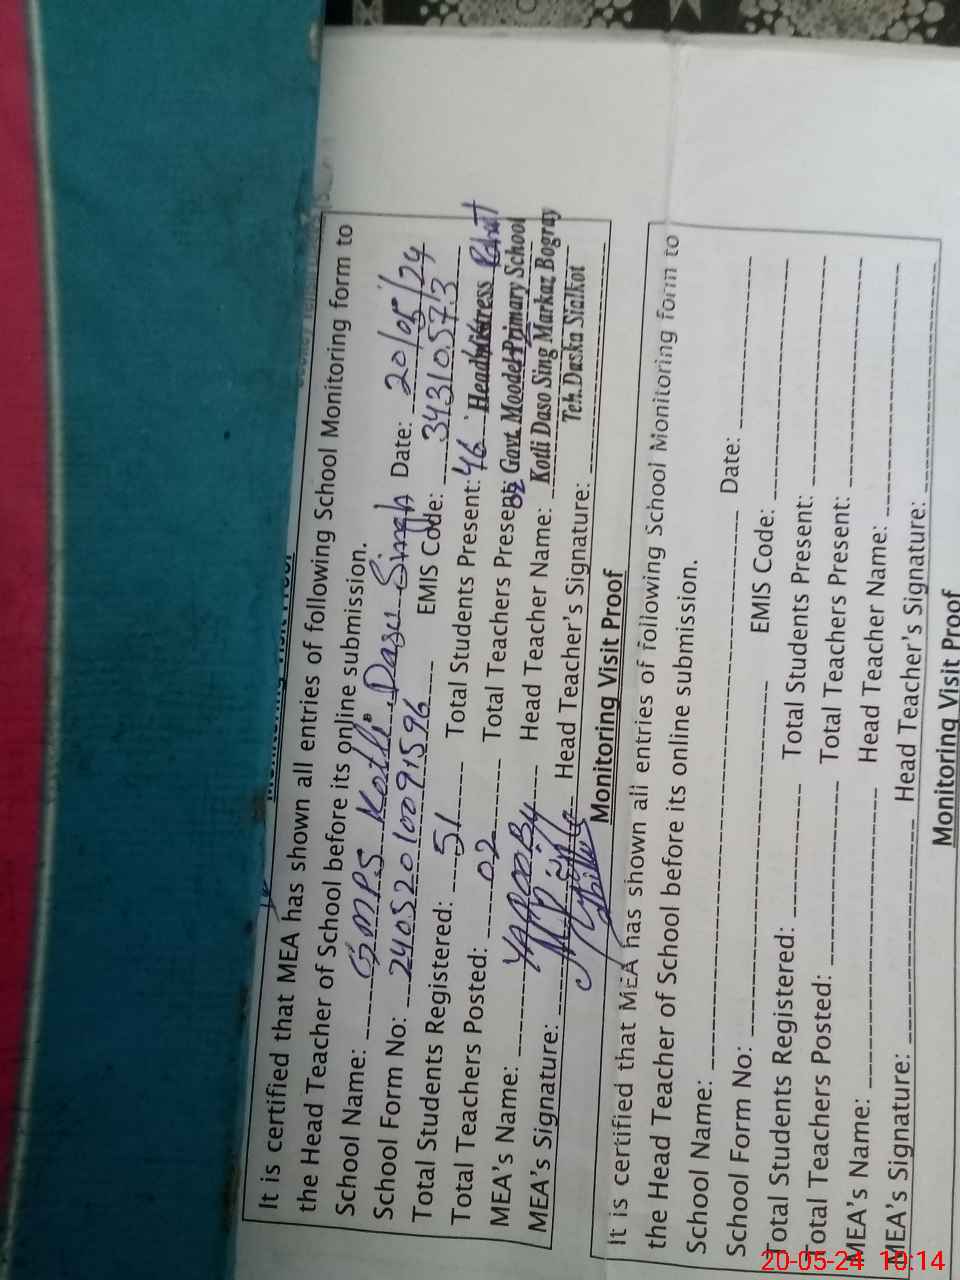 Monitoring Visit Proof
It is certified that MEA has shown all entries of following School Monitoring form to
the Head Teacher of School before its online submission.
School Name: GMPS Kotli Dasu Singh Date: 20/05/24
School Form No: 24052010091596 EMIS Code: 34310573
Total Students Registered: 51 Total Students Present: 46
Total Teachers Posted: 02 Total Teachers Present: 02
MEA's Name: Head Teacher Name:
MEA's Signature: Head Teacher's Signature:
Headmistress
Govt. Moodel Primary School
Kotli Daso Sing Markaz Bogray
Teh. Daska Sialkot
Monitoring Visit Proof
It is certified that MEA has shown all entries of following School Monitoring form to
the Head Teacher of School before its online submission.
School Name: Date:
School Form No: EMIS Code:
Total Students Registered: Total Students Present:
Total Teachers Posted: Total Teachers Present:
MEA's Name: Head Teacher Name:
MEA's Signature: Head Teacher's Signature:
Monitoring Visit Proof
20-05-24 10:14